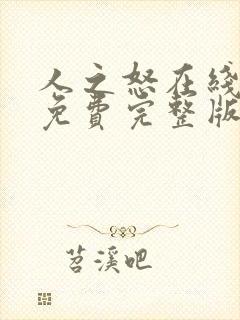 人之怒在线
免费完整版
苕溪吧